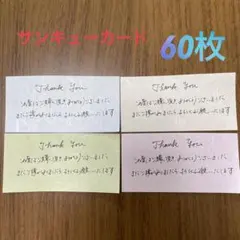 サンキューカード
60枚
Thank You
この度はご購入頂き ありがとうございました
またご縁がありましたら よろしくお願いいたします
Thank You
この度はご購入頂き ありがとうございました
またご縁がありましたら よろしくお願いいたします
Thank You
この度はご購入頂き ありがとうございました
またご縁がありましたら よろしくお願いいたします
Thank You
この度はご購入頂き ありがとうございました
またご縁がありましたら よろしくお願いいたします